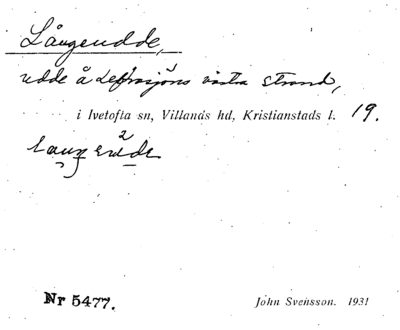 Långeudde,
udde å sjöns västra strand,
i Ivetofta sn, Villands hd, Kristianstads l. 19.
Nr 5477.
John Svensson. 1931